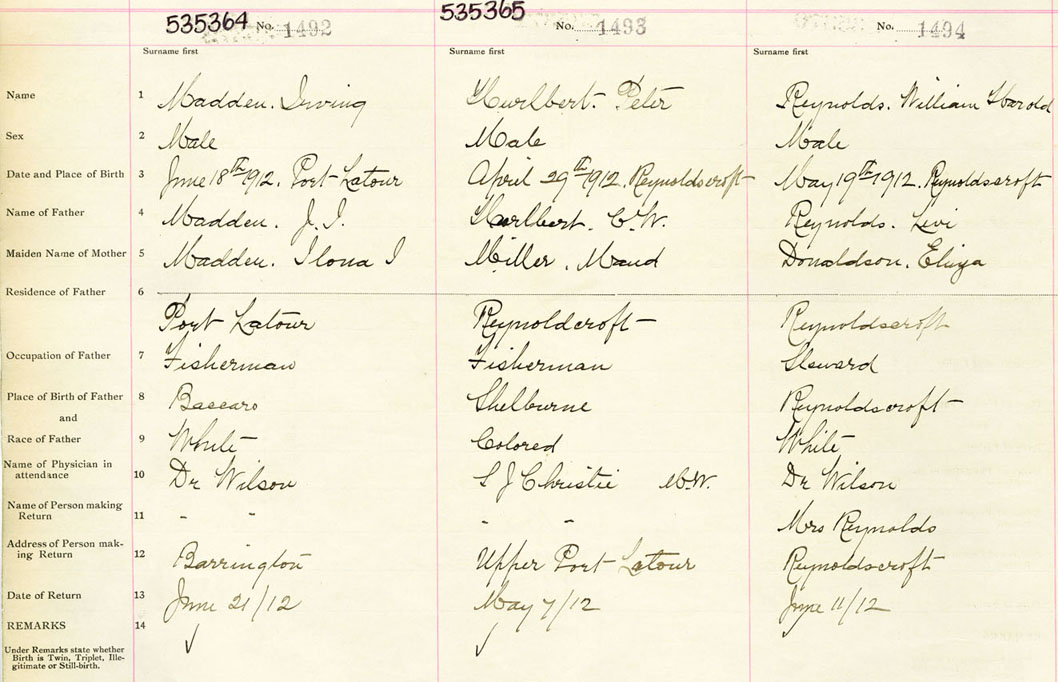 535364 No. 1492 535365 No. 1493 No. 1494
Surname first Surname first Surname first
Name 1 Madden. Irving Hurlbert. Peter Reynolds. William Harold
Sex 2 Male Male Male
Date and Place of Birth 3 June 18th 1912. Port Latour April 29th 1912. Reynoldscroft May 19th 1912. Reynoldscroft
Name of Father 4 Madden. J. I. Hurlbert. C. W. Reynolds. Levi
Maiden Name of Mother 5 Madden. Ilona I Miller. Maud Donaldson. Eliza
Residence of Father 6
Port Latour Reynoldcroft Reynoldscroft
Occupation of Father 7 Fisherman Fisherman Steward
Place of Birth of Father 8 Baccaro Shelburne Reynoldscroft
and
Race of Father 9 White Colored White
Name of Physician in
attendance 10 Dr Wilson S J Christie M.W. Dr Wilson
Name of Person making
Return 11 " " " " Mrs Reynolds
Address of Person mak-
ing Return 12 Barrington Upper Port Latour Reynoldscroft
Date of Return 13 June 21/12 May 7/12 June 11/12
REMARKS 14 ✓ ✓
Under Remarks state whether
Birth is Twin, Triplet, Ille-
gitimate or Still-birth.